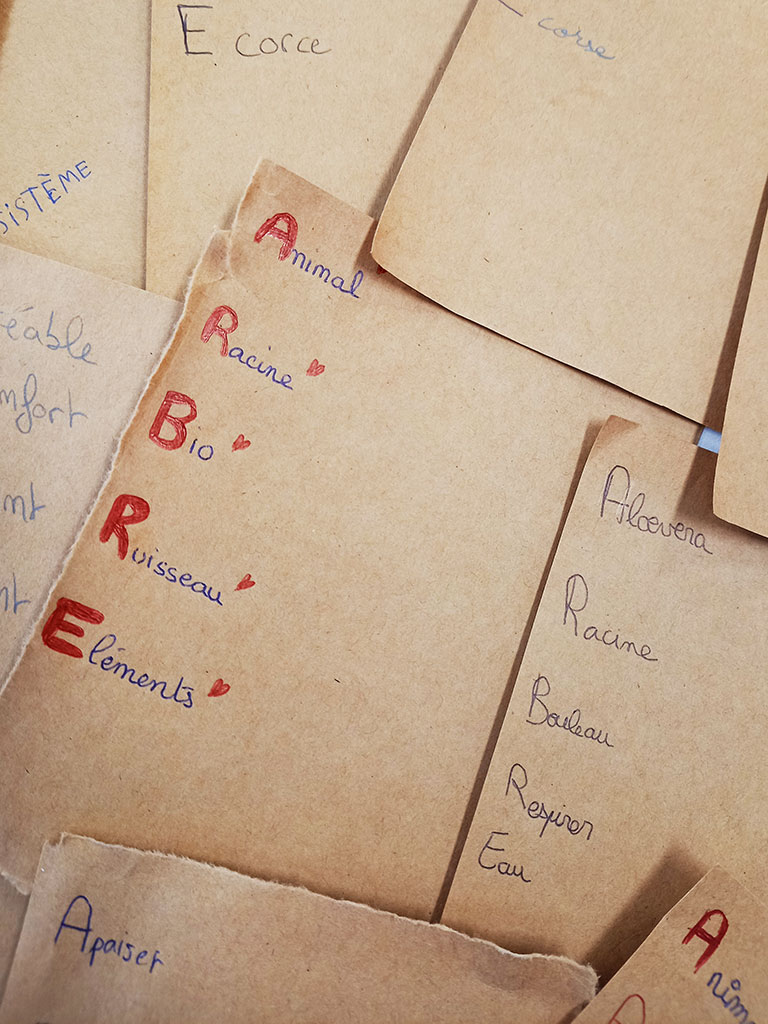 Ecorce
corse
SISTÈME
éable
nfort
nt
nt
Animal
Racine
Bio
Ruisseau
Eléments
Aloevera
Racine
Bouleau
Respirer
Eau
Apaiser
Anima
A